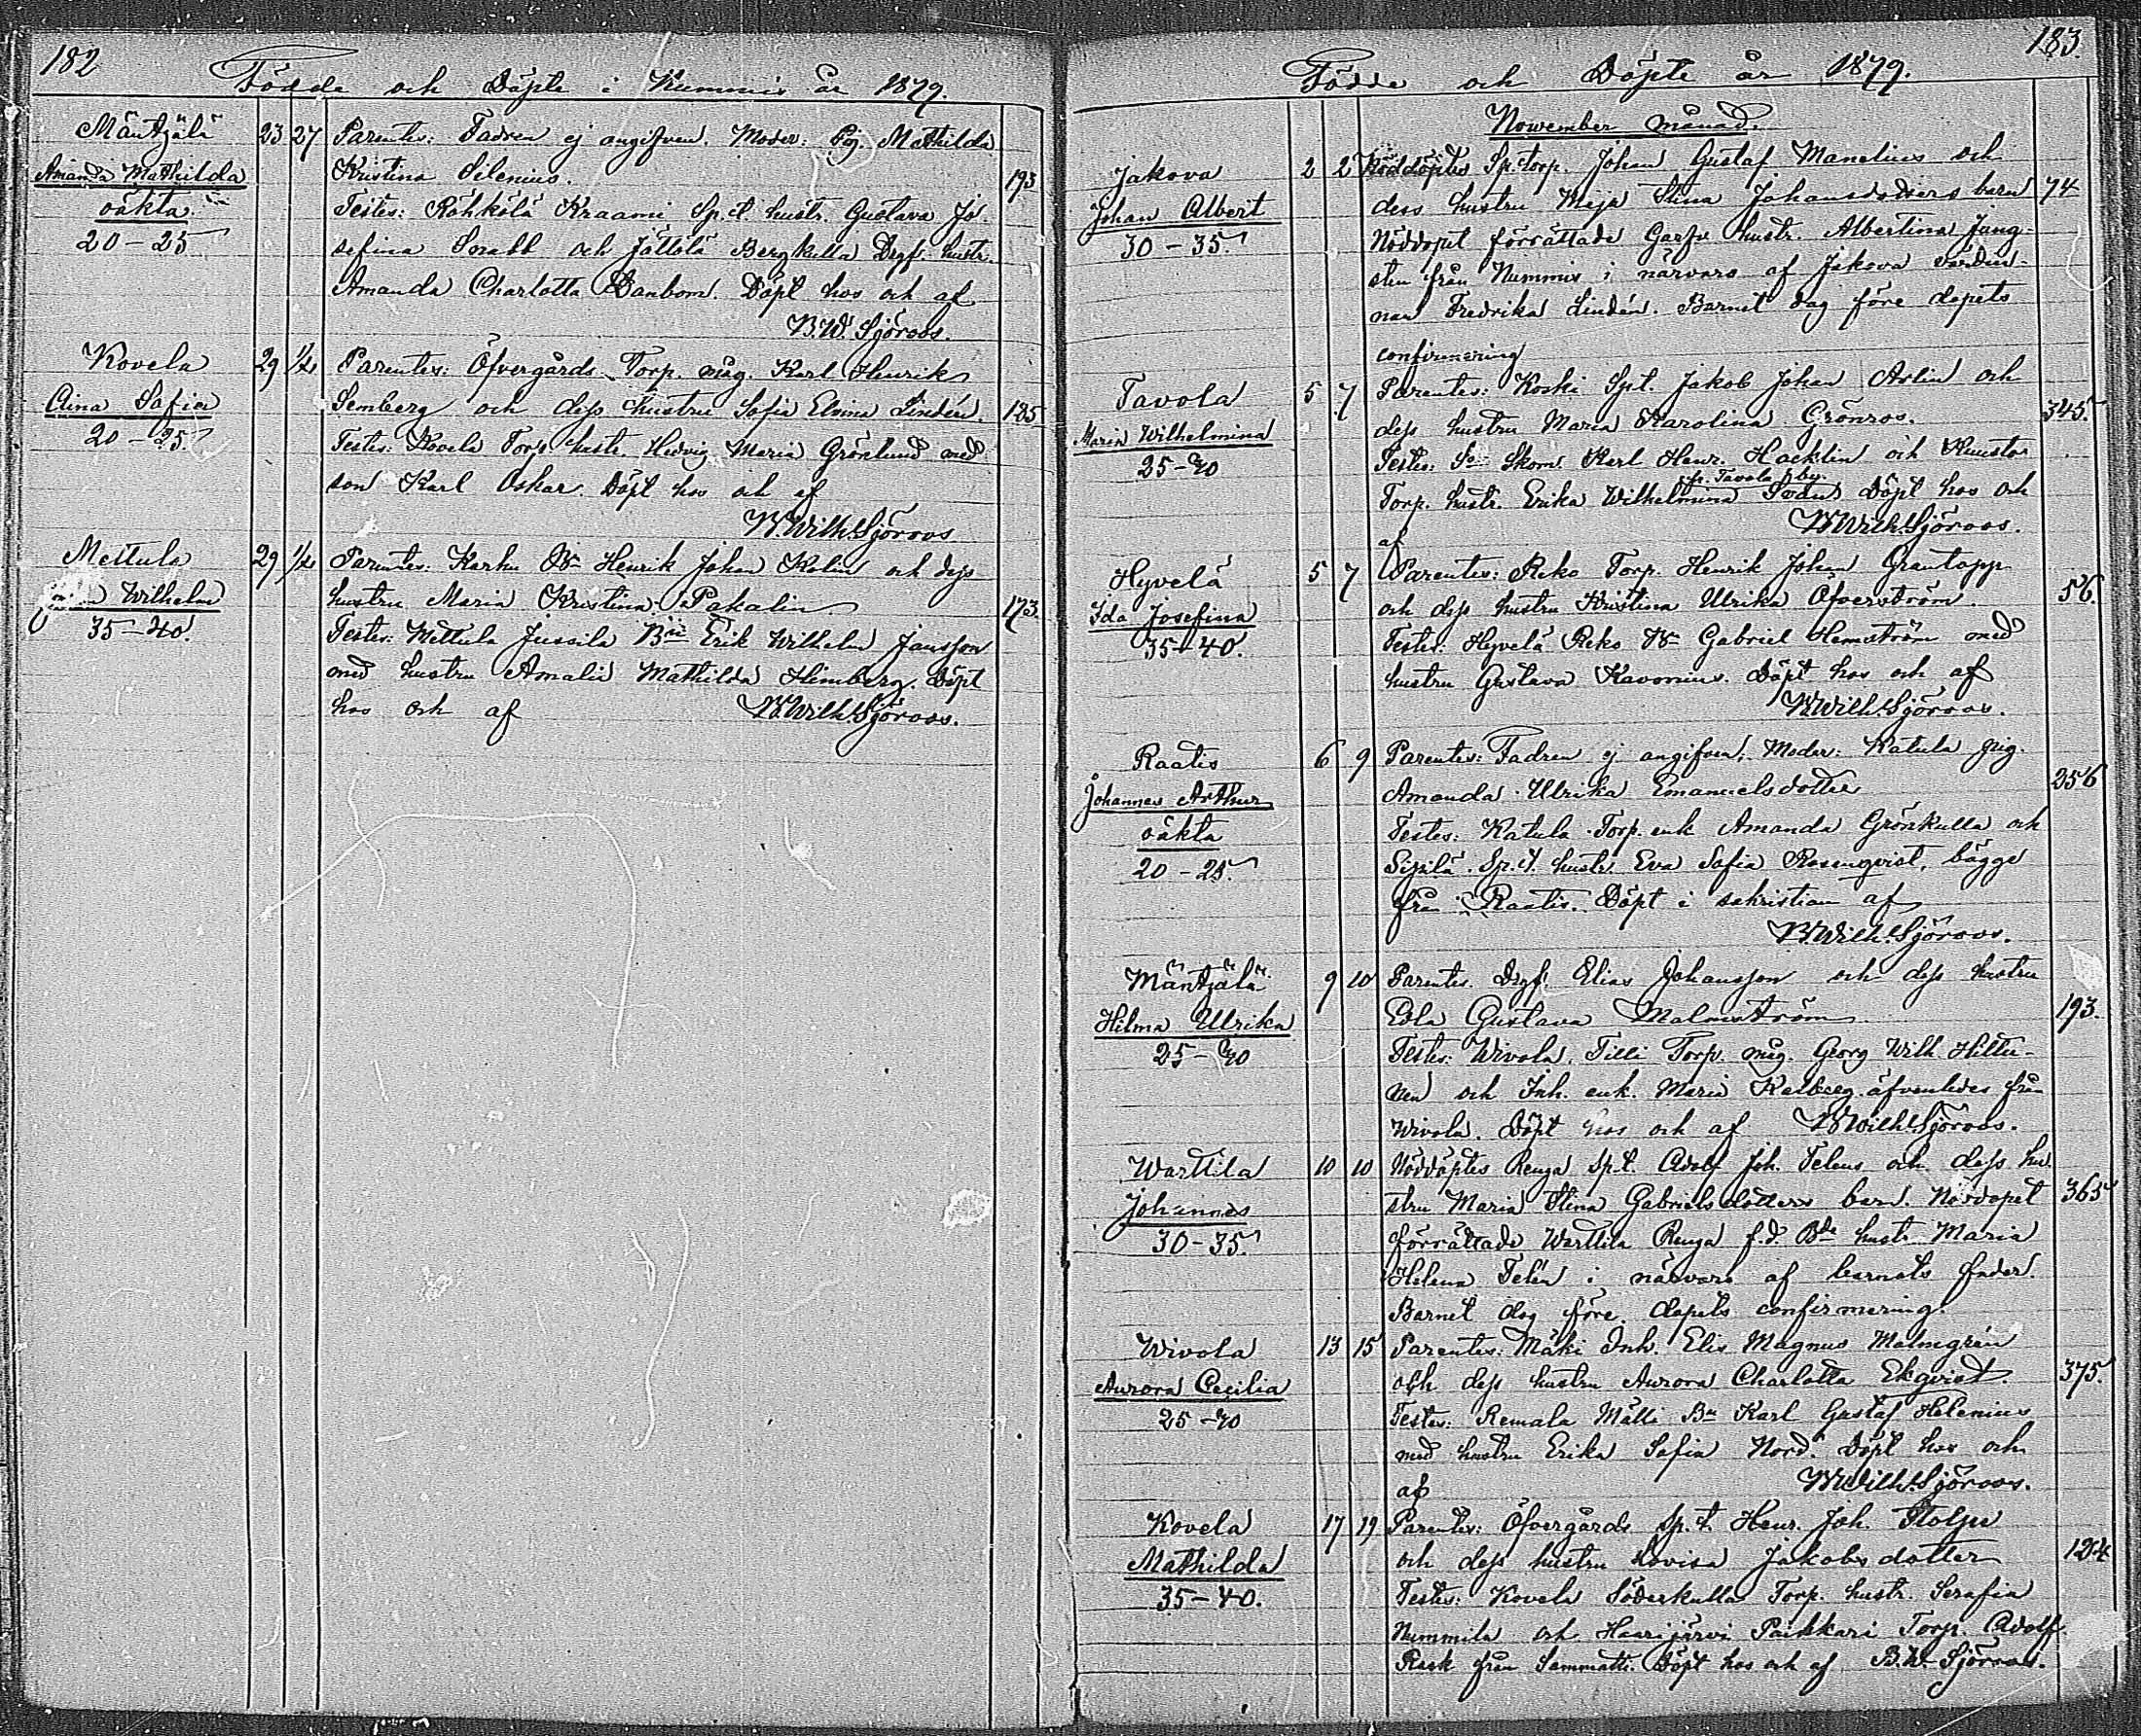 182
Födde och Döpte i Nummis år 1879.
Mäntzälä 23 27 Parentes: Fadren ej angifven. Moder: Pig. Mathilda
Amanda Mathilda Kristina Silenius. 193
oäkta. Testes: Röhkölä Kraami Sp.t. hustr. Gustava Jo-
20-25 sefina Snabb och Jättölä Bergkulla Drgf. hustr.
Amanda Charlotta Danbom. Döpt hos och af
B.W. Sjöroos.
Kovela 29 1/11 Parentes: Öfvergårds Torp. måg. Karl Henrik
Aina Sofia Semberg och dess hustru Sofia Elvina Lindén. 125
20-25 Testes: Kovela Torp. hustr. Hedvig Maria Grönlund med
son Karl Oskar. Döpt hos och af
B.Wilh.Sjöroos
Mettula 29 1/11 Parentes: Karhu Henrik Johan Kolin och dess
Wilhelm hustru Maria Kristina Pakalin 173.
35-40. Testes: Mettula Jussila Erik Wilhelm Jansson
med hustru Amalia Mathilda Himberg. Döpt
hos och af B.Wilh.Sjöroos.
183.
Födde och Döpte år 1879.
November månad.
Jakova 2 2 Nöddöptes Sp.torp. Johan Gustaf Manelius och
Johan Albert dess hustru Maja Stina Johansdotters barn 74
30-35. Nöddopet förrättade Garfv. hustr. Albertina Ljung-
sten från Nummis i närvaro af Jakova värdin-
nan Fredrika Lindén. Barnet dog före dopets
confirmering
Tavola 5 7 Parentes: Koski Spt. Jakob Johan Arlin och
Maria Wilhelmina dess hustru Maria Karolina Grönros. 345.
25-40 Testes: Skom. Karl Henr. Hacklin och
fr. Tavola by.
Torp. hustr. Erika Wilhelmina Döpt hos och
af B.Wilh.Sjöroos.
Hyvelä 5 7 Parentes: Reko Torp. Henrik Johan Grantopp
Ida Josefina och dess hustru Kristina Ulrika Öfverström. 56.
35-40. Testes: Hyvelä Reko Gabriel Hemström med
hustru Gustava Kavonius. Döpt hos och af
B.Wilh.Sjöroos.
Raatis 6 9 Parentes: Fadren ej angifven, Moder: Katula pig.
Johannes Arthur Amanda Ulrika Emanuelsdotter 256
oäkta Testes: Katula Torp. enk. Amanda Grönkulla och
20-25. Sipilä Sp.t. hustr. Eva Sofia Rosenqvist, bägge
från Raatis. Döpt i sakristian af
B.Wilh.Sjöroos.
Mäntzälä 9 10 Parentes. Drgf. Elias Johansson och dess hustru
Hilma Ulrika Eva Gustava Malmström 193.
25-40 Testes: Wivola, Tilli Torp. måg. Georg Wilh. Hiltu-
nen och Inh. enk. Maria Kalberg äfvenledes från
Wivola. Döpt hos och af B.Wilh.Sjöroos.
Warttila 10 10 Nöddöptes Renga Sp.t. Adolf Joh. Telens och dess hu-
Johannes stru Maria Stina Gabrielsdotters barn. Nöddopet 365
30-35. förrättade Warttila Renga f.d. Bde hustr. Maria
Helena Telén i närvaro af barnets fader.
Barnet dog före dopets confirmering.
Wivola 13 15 Parentes: Mäki Inh. Elis Magnus Malmgrén
Aurora Cecilia och dess hustru Aurora Charlotta Ekqvist. 375.
25-40 Testes: Remala Mälli Bn Karl Gustaf Helenius
med hustru Erika Sofia Nord. Döpt hos och
af B.Wilh.Sjöroos.
Kovela 17 19 Parentes: Öfvergårds Sp.t. Henr. Joh. Stolpe
Mathilda och dess hustru Lovisa Jakobsdotter 124
35-40. Testes: Kovela Söderkulla Torp. hustr. Serafia
Nummila och Haarijärvi Paikkari Torp. Adolf
Rask från Sammatti. Döpt hos och af B.W. Sjöroos.